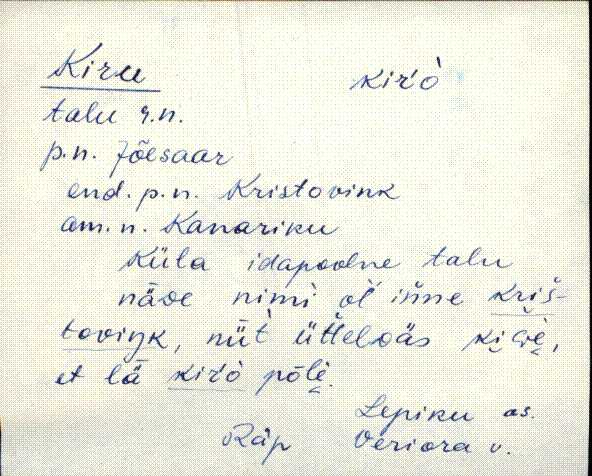 Kiru kir'ò
talu r.n.
p.n. Jõesaar
end. p.n. Kristovink
am. n. Kanariku
Küla idapoolne talu
näɔe nimì oĺ inne kriš-
toviŋk, nüt̀ üttelɔäs
et lä kir'ò põlè.
Lepiku as.
Räp Veriora v.